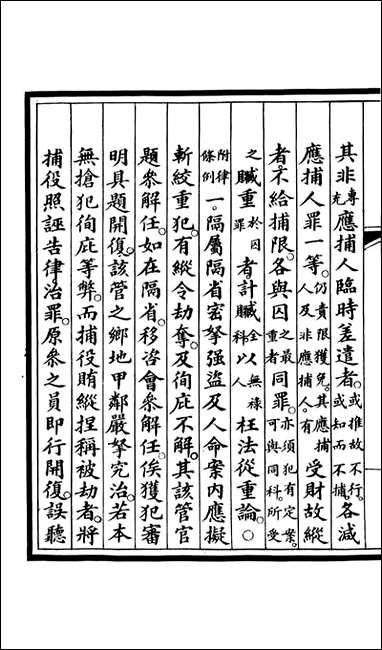 其非專充應捕人臨時差遣者。或推故不行。或知而不捕。各減
應捕人罪一等。仍責限獲免。其應捕人及非應捕人。有受財故縱
者。不給捕限。各與囚之最重者同罪。亦須犯有定案。可與同科。所受
之贓重於囚罪者計贓全科以無祿人枉法從重論。○
附律條例一。隔屬隔省密拏强盜及人命案內應擬
斬絞重犯。有縱令劫奪。及徇庇不解。其該管官
題參解任。如在隔省。移咨會參解任。俟獲犯審
明具題開復。該管之鄉地甲鄰嚴拏究治。若本
無搶犯徇庇等弊。而捕役賄縱捏稱被劫者。將
捕役照誣告律治罪。原參之員即行開復。誤聽